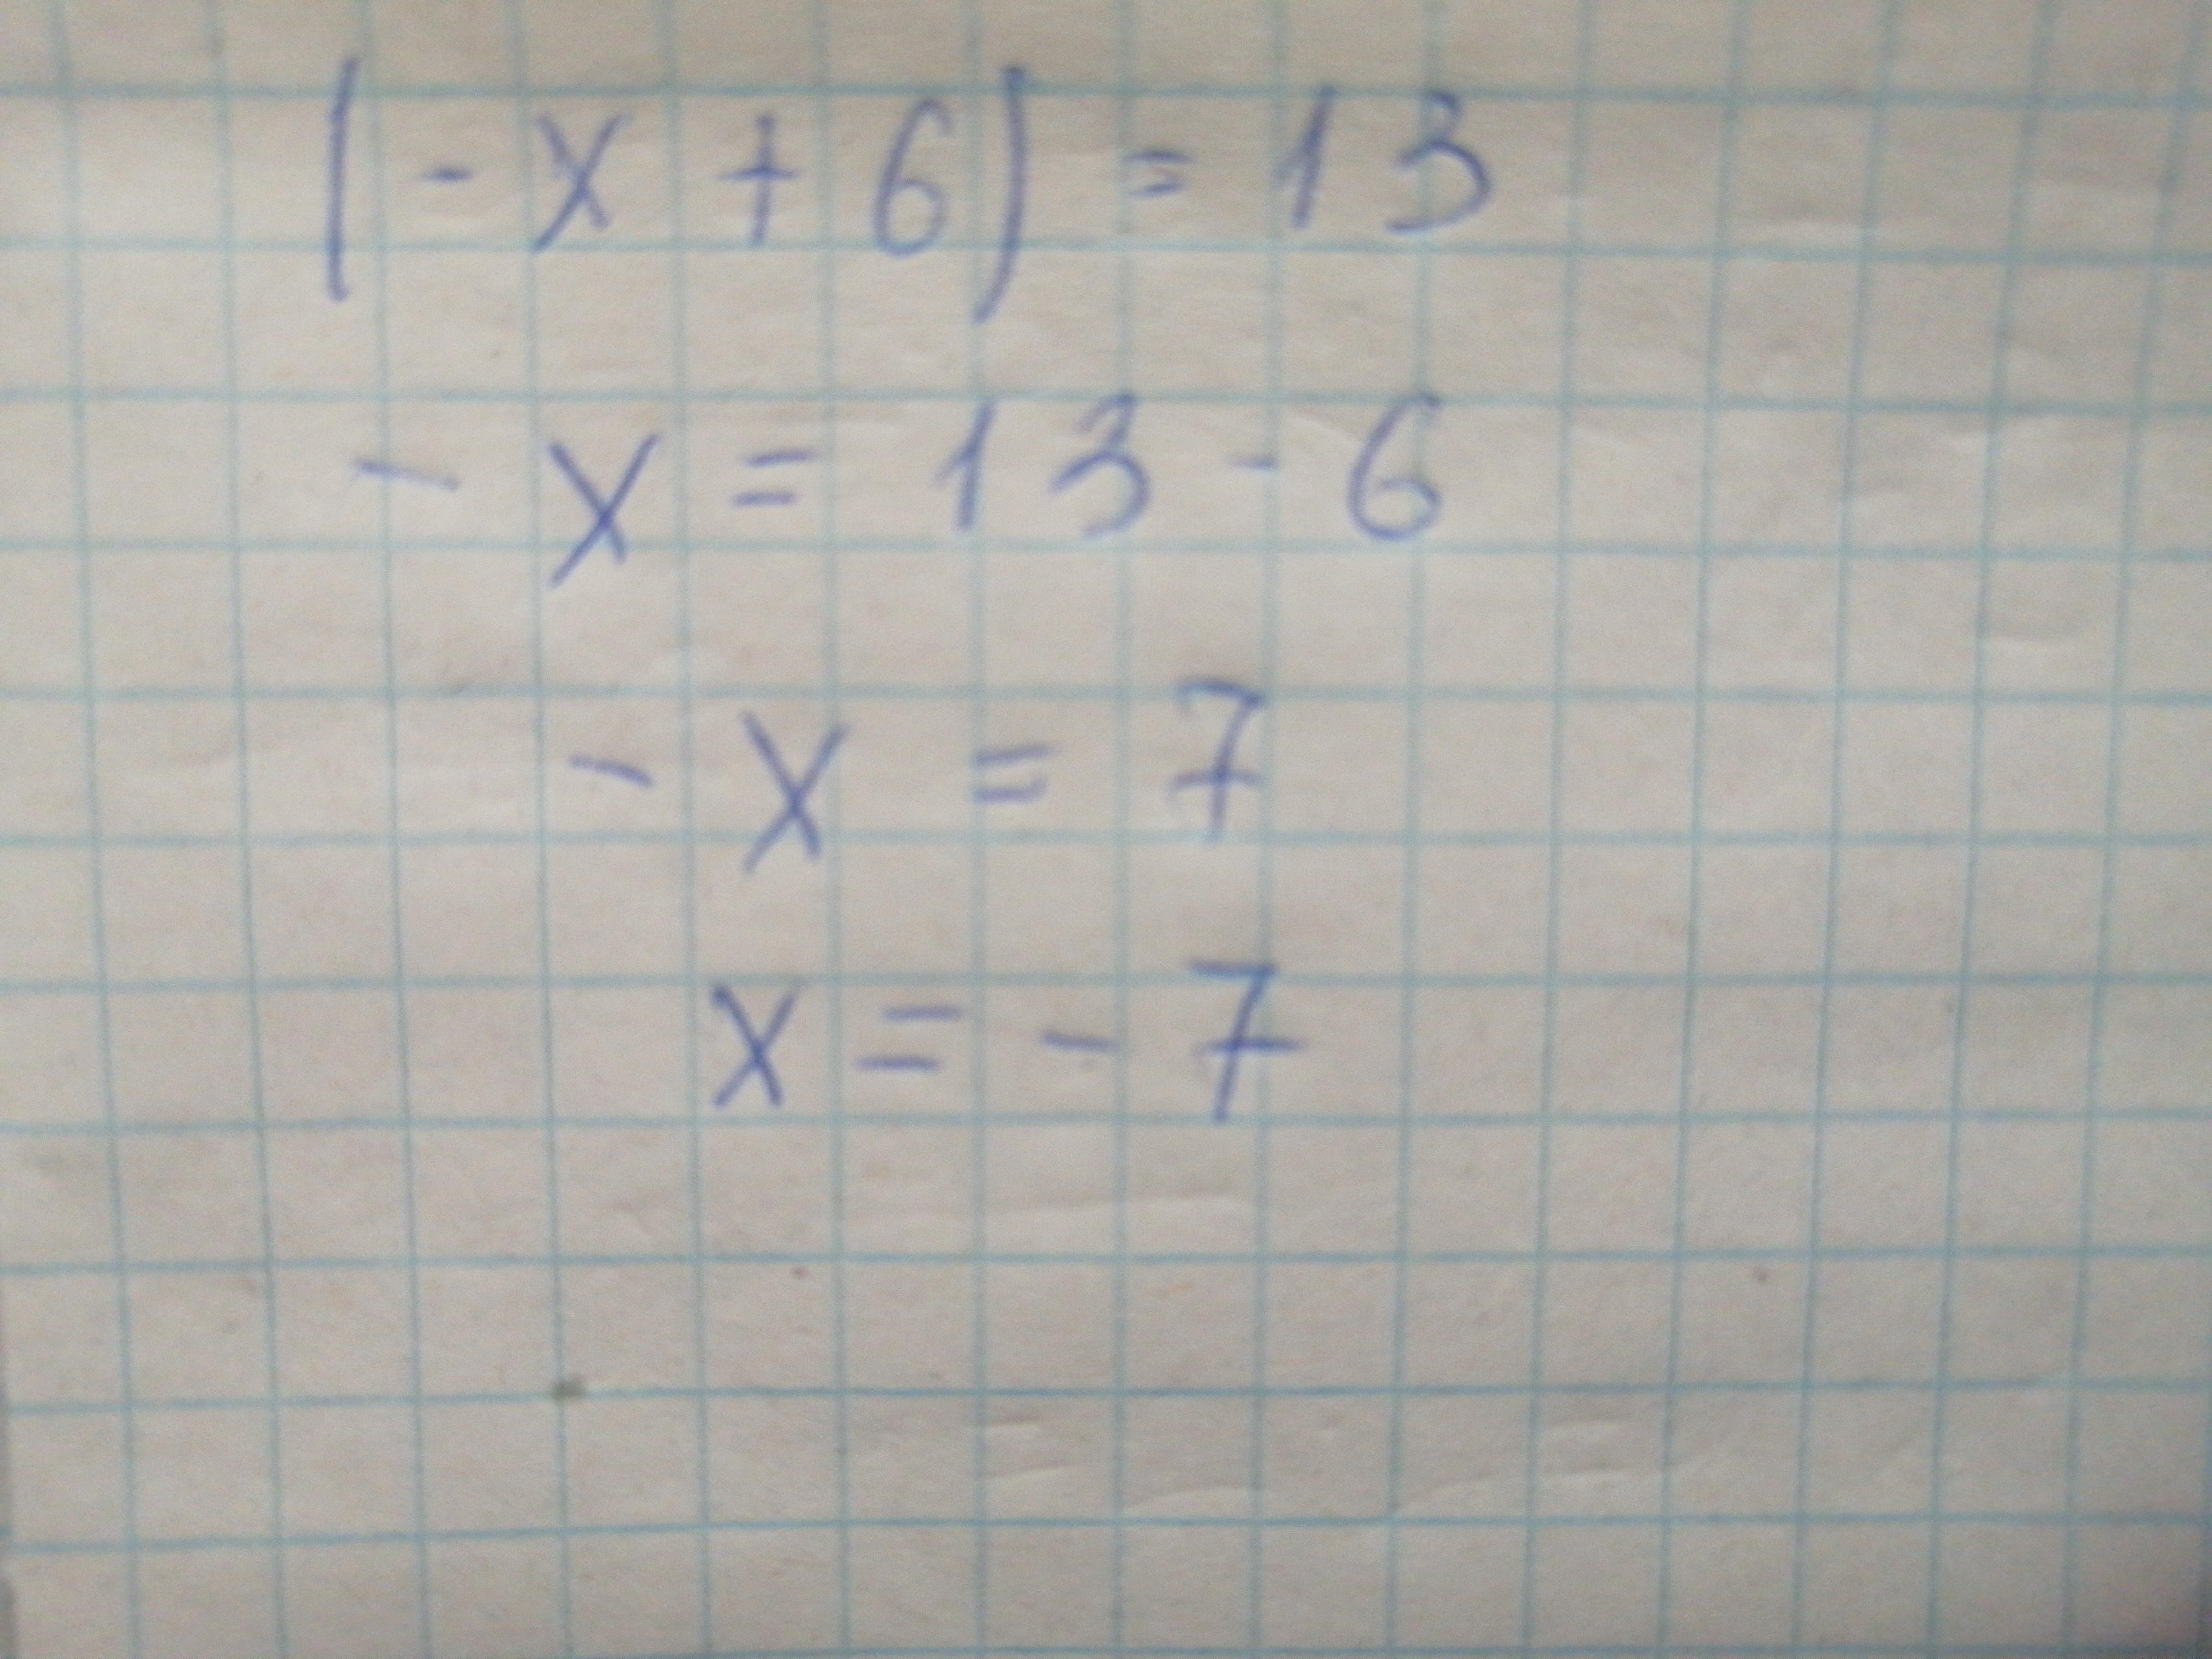 (-x + 6) = 13
- x = 13 - 6
- x = 7
x = - 7